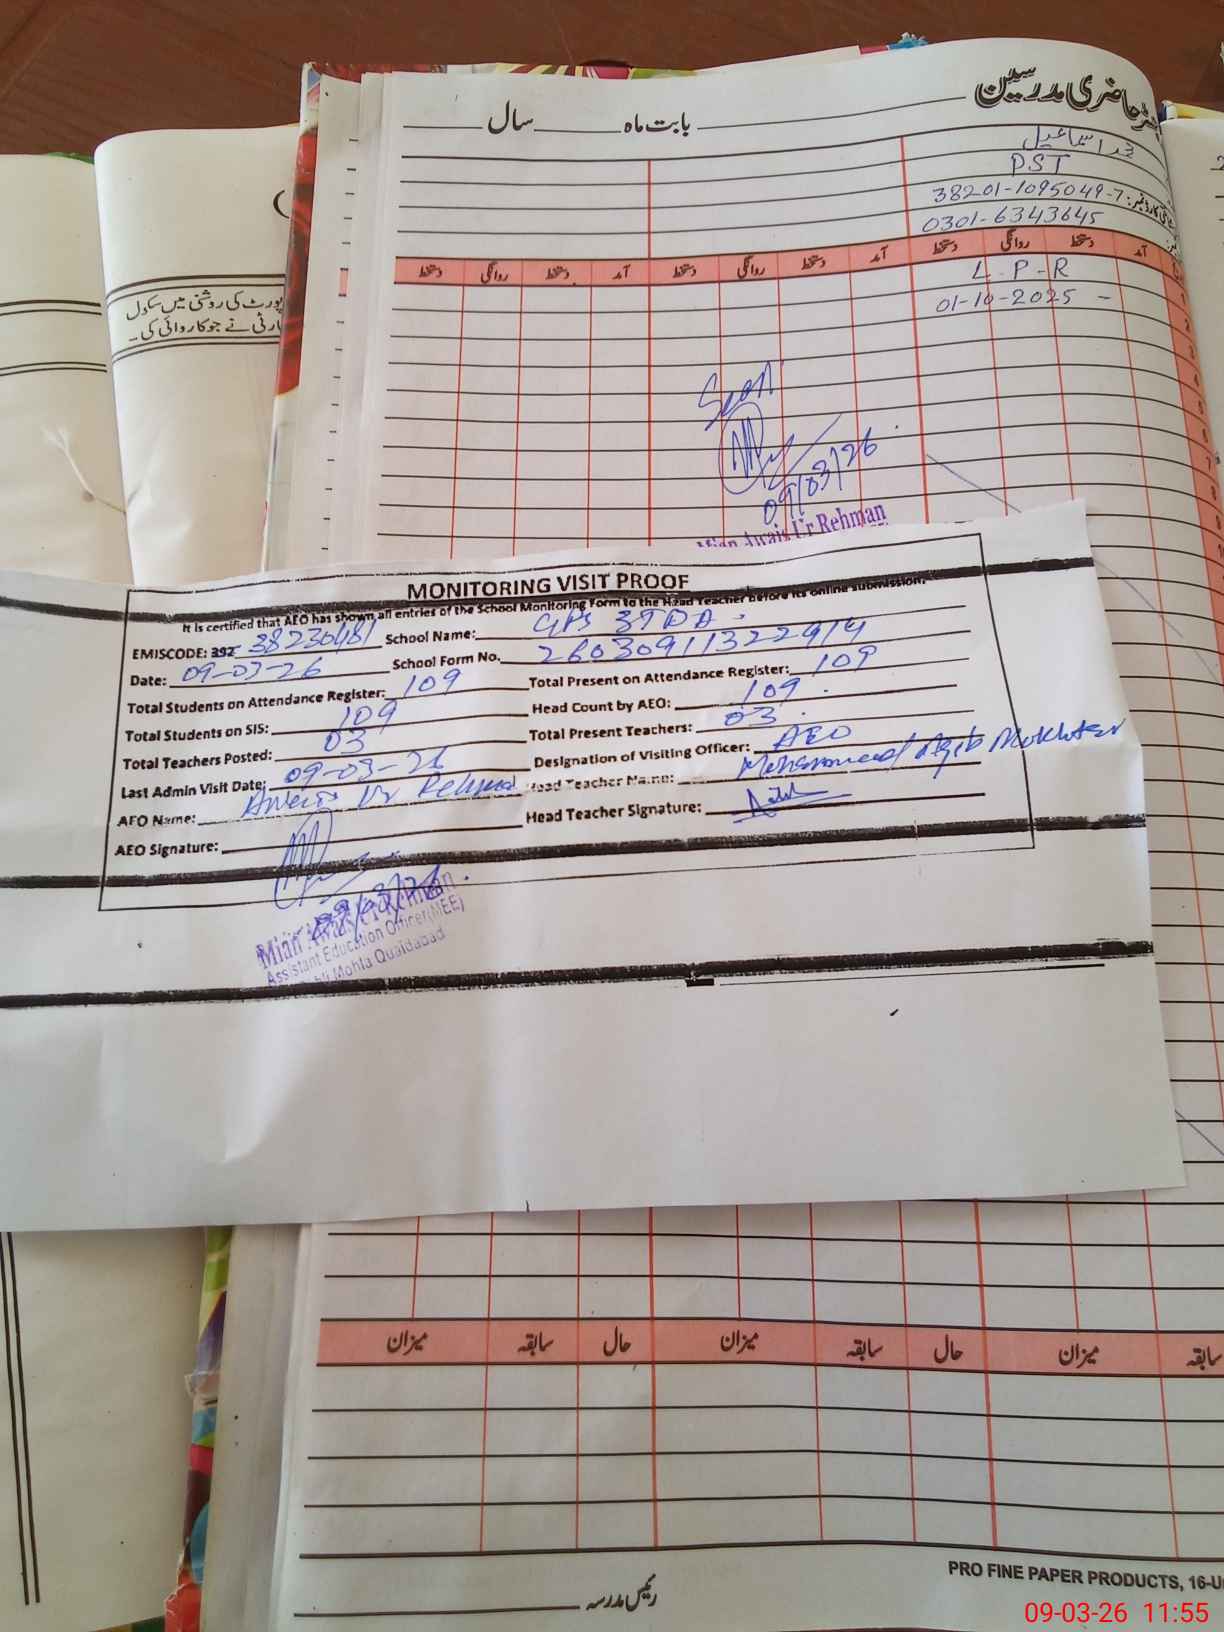 حاضری مدرسین
بابت ماہ سال
محمد اسماعیل
PST
38201-1095049-7
0301-6343645
آمد دستخط روانگی دستخط آمد دستخط روانگی دستخط آمد دستخط روانگی دستخط
L-P-R
01-10-2025 -
پورٹ کی روشنی میں سکول
نے جو کاروائی کی ..
Seen
09/03/26
Mian Awais Ur Rehman
MONITORING VISIT PROOF
It is certified that AEO has shown all entries of the School Monitoring Form to the Head Teacher before its online submission.
EMISCODE: 392 38230481 School Name: GPS 37DA
Date: 09-03-26 School Form No. 2603091132 2914
Total Students on Attendance Register: 109 Total Present on Attendance Register: 109
Total Students on SIS: 109 Head Count by AEO: 109
Total Teachers Posted: 03 Total Present Teachers: 03
Last Admin Visit Date: 09-03-26 Designation of Visiting Officer: AEO
AEO Name: Awais Ur Rehman Head Teacher Name: Muhammad Aqib Mukhtar
AEO Signature: Head Teacher Signature:
09/03/26
Mian Awais Ur Rehman
Assistant Education Officer (MEE)
Mohla Quaidabad
میزان سابقہ حال میزان سابقہ حال میزان سابقہ
PRO FINE PAPER PRODUCTS, 16-U
رئیس مدرسہ
09-03-26 11:55